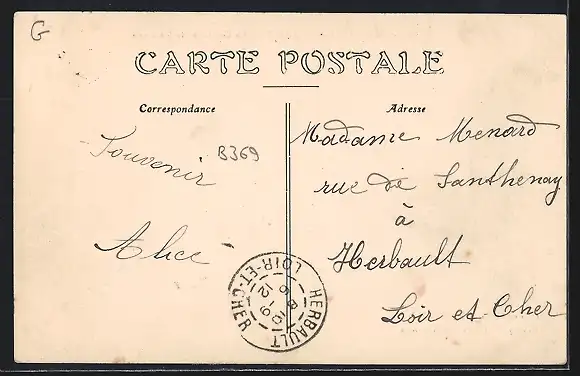 G
CARTE POSTALE
Correspondance
Souvenir
B369
Alice
Adresse
Madame Menard
rue de Santhenay
à
Herbault
Loir et Cher
HERBAULT
LOIR-ET-CHER